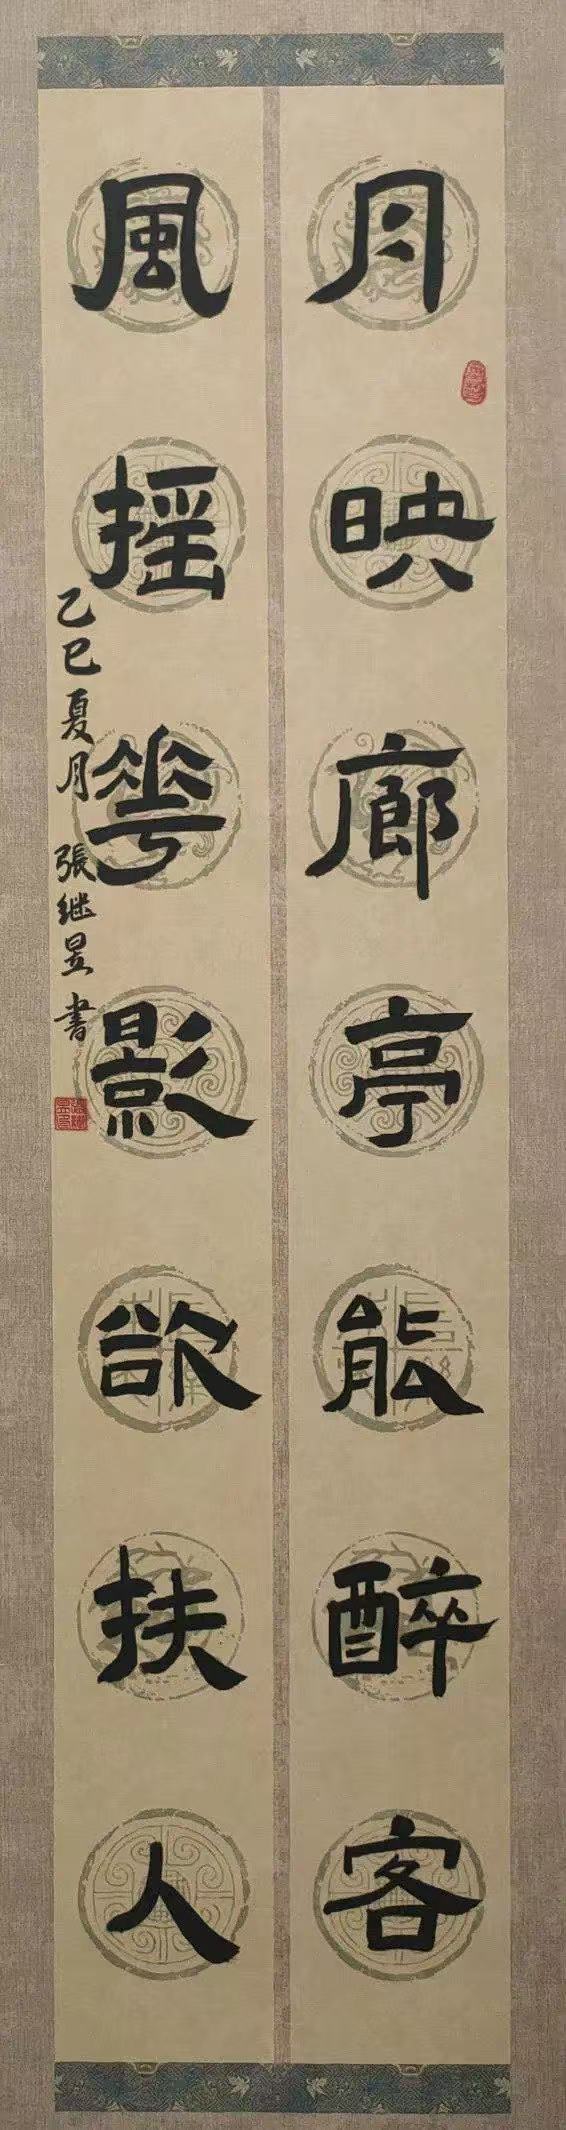 月映廊亭能醉客
風摇華影欲扶人
乙巳夏月 張继昱 書